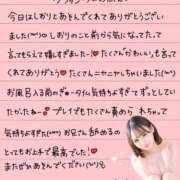 今日はしおりとあそんでくれてありがとうござい
ました(♡ᴗ♡)しおりのこと前から気になってたって
言ってもらえて嬉しすぎました〜!たくさんかわいいも言って
くれてありがとう♡たくさんニヤニヤしちゃいました(♡ᴗ♡)
お風呂入る前のぎゅータイム気持ちよすぎてずっとしてい
たかったね〜♪プレイでもたくさん責めら れちゃって
気持ちよすぎた(♡ᴗ♡)お兄さん舐めるの
とってもお上手で最高でした!♡
またぜひあそんでください(♡ᴗ♡)